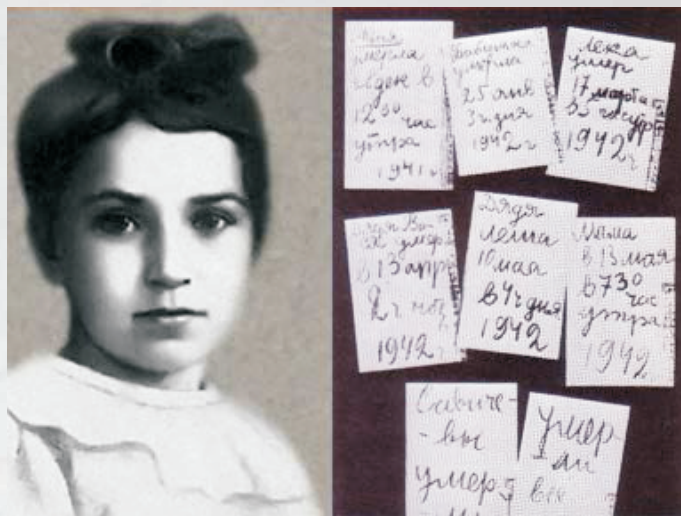 Женя
умерла
28 дек в
12 30 час
утра
1941 г
Бабушка
умерла
25 янв
3 ч. дня
1942 г
Лека
умер
17 марта
в 5 час утр
1942 г
Дядя Вася
умер
в 13 апр
2 ч ноч
1942 г
Дядя
Леша
10 мая
в 4 ч дня
1942
Мама
в 13 мая
в 7 30
час
утра
1942
Савиче-
-вы
умер
Умер
-ли
все